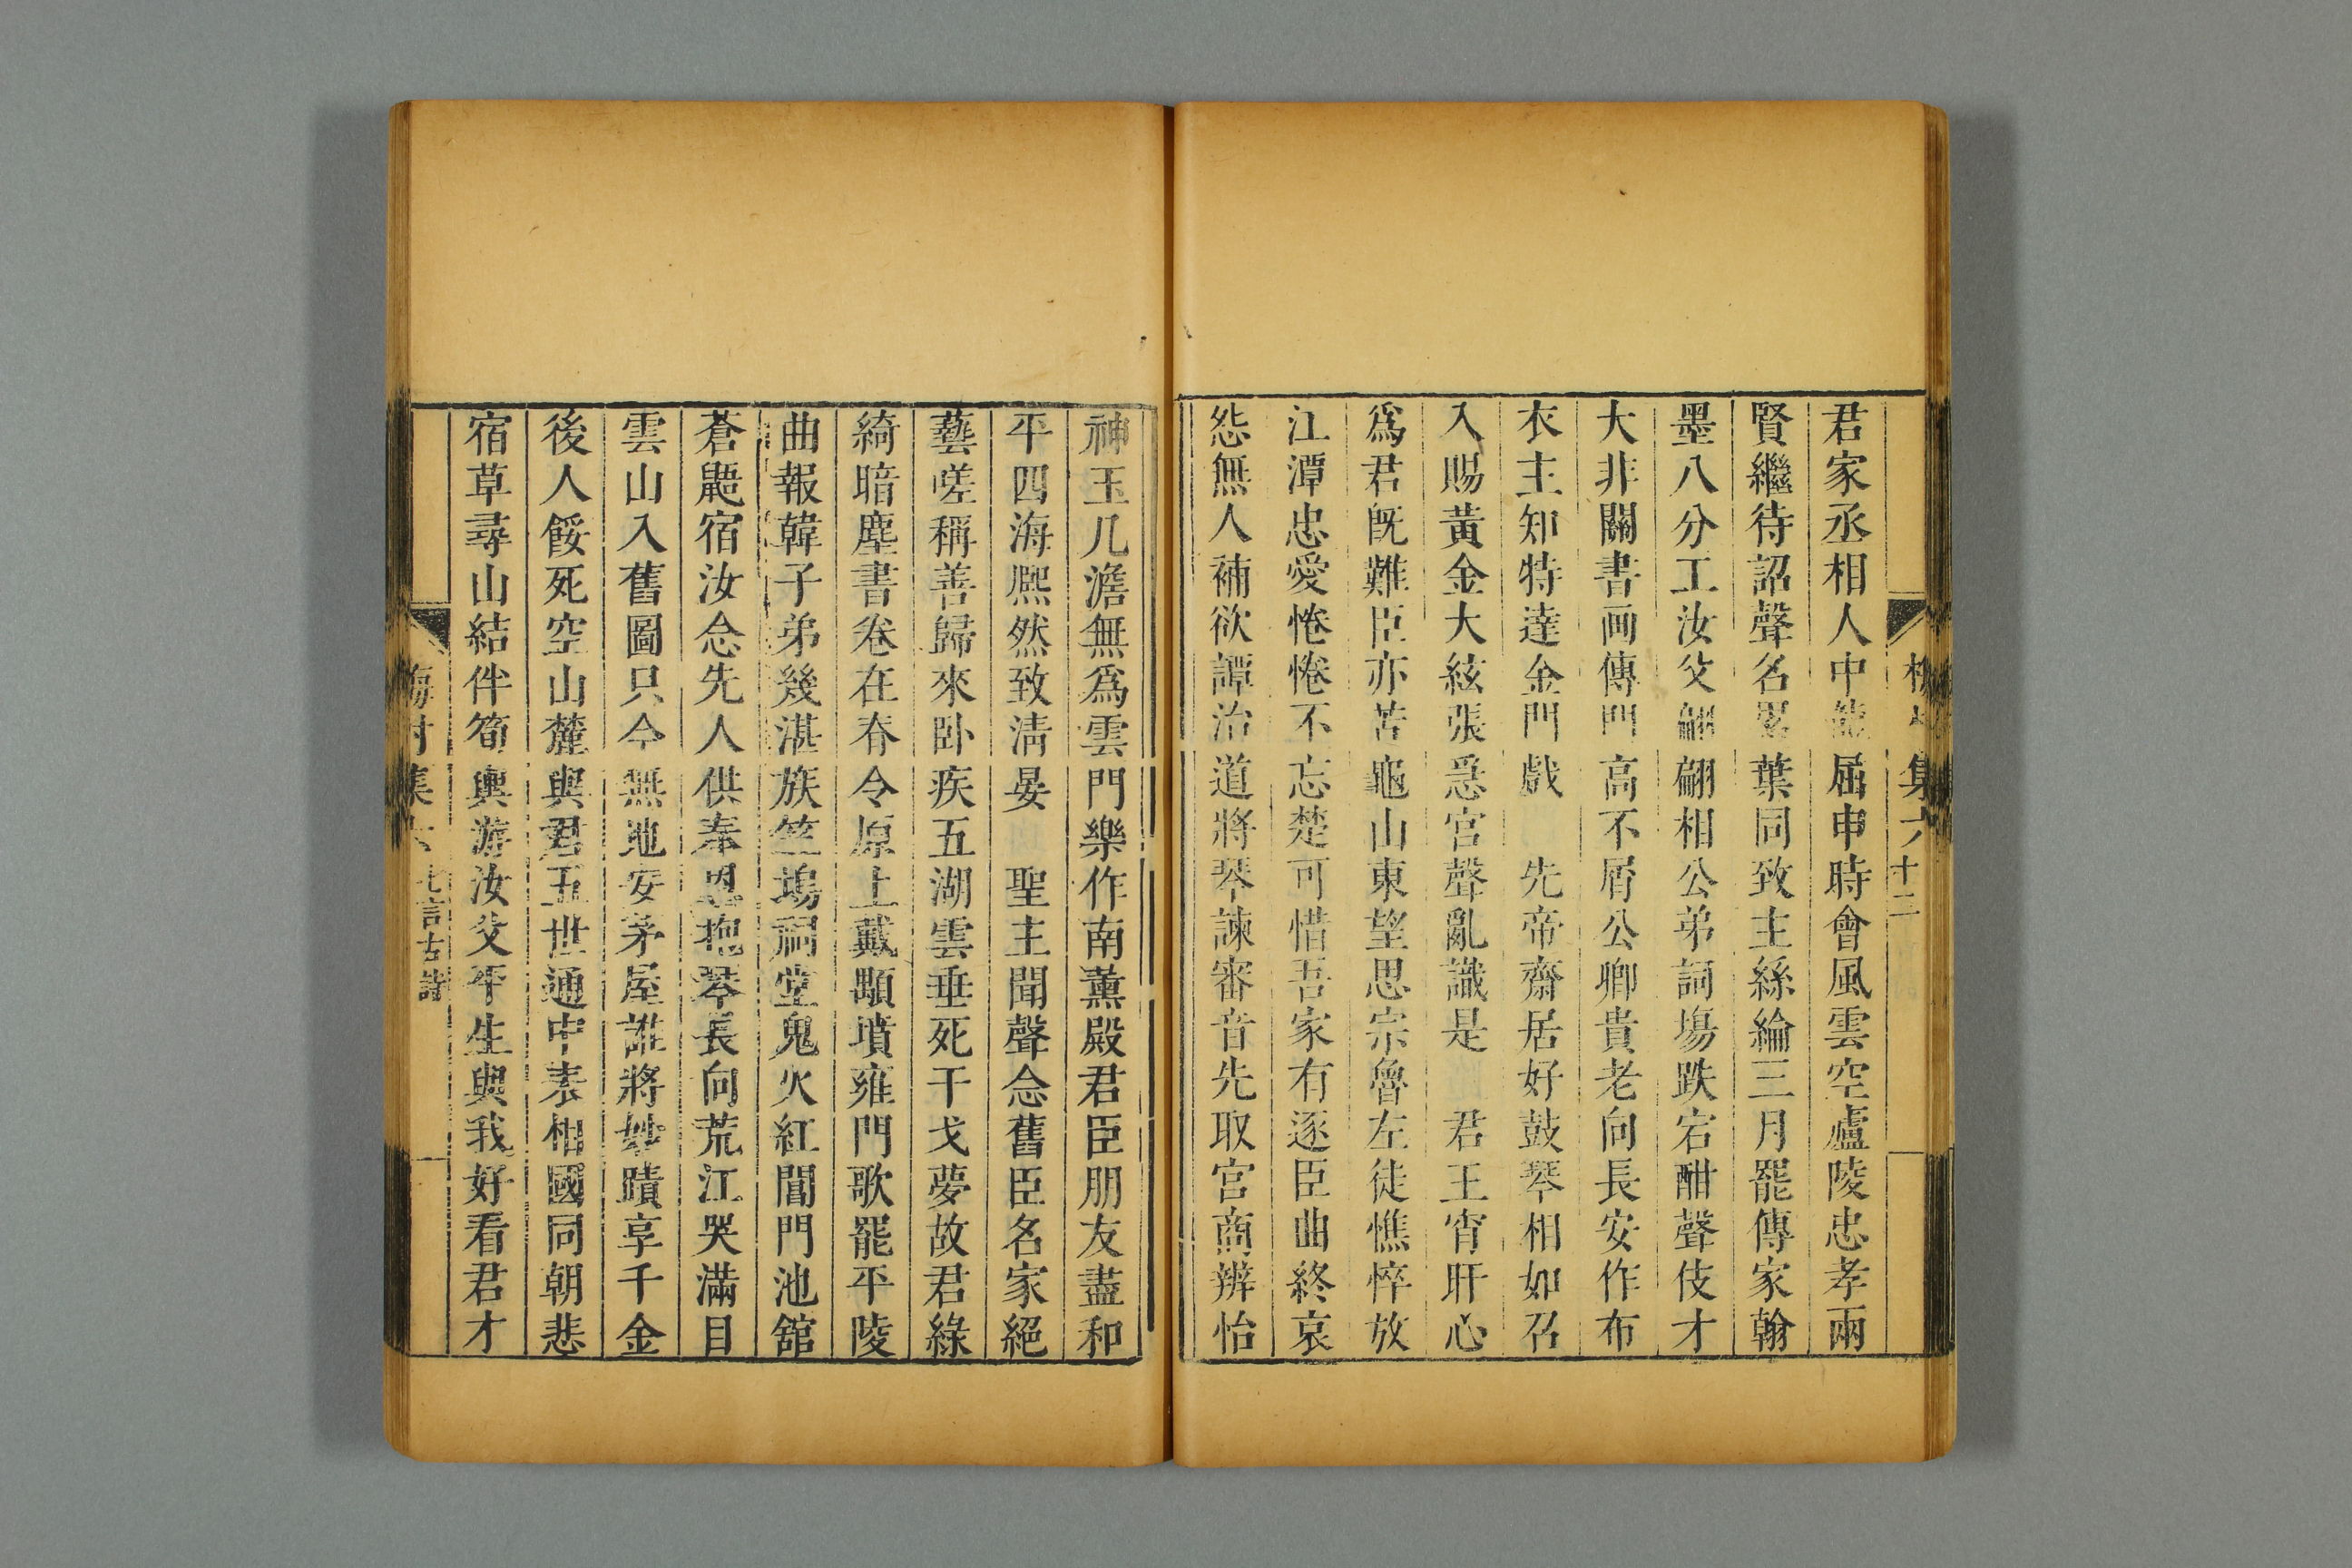 集六 十二
君家丞相人中龍屈申時會風雲空廬陵忠孝兩
賢繼待詔聲名累葉同致主絲綸三月罷傳家翰
墨八分工汝父翩翩相公弟詞塲跌宕酣聲伎才
大非關書画傳門高不屑公卿貴老向長安作布
衣主知特達金門戲 先帝齋居好鼓琴相如召
入賜黃金大絃張急宮聲亂識是 君王宵旰心
爲君旣難臣亦苦龜山東望思宗魯左徒憔悴放
江潭忠愛惓惓不忘楚可惜吾家有逐臣曲終哀
怨無人補欲譚治道將琴諫審音先取宮商辨怡
神玉几澹無爲雲門樂作南薰殿君臣朋友盡和
平四海熈然致清晏 聖主聞聲念舊臣名家絕
藝嗟稱善歸來卧疾五湖雲垂死干戈夢故君綠
綺暗塵書卷在春令原上戴顒墳雍門歌罷平陵
曲報韓子弟幾湛族竺塢祠堂鬼火紅閶門池舘
蒼鼯宿汝念先人供奉恩抱琴長向荒江哭滿目
雲山入舊圖只今無地安茅屋誰將妙蹟享千金
後人餒死空山麓與君五世通中表相國同朝悲
宿草尋山結伴筍輿游汝父平生與我好看君才
梅村集六 七言古詩